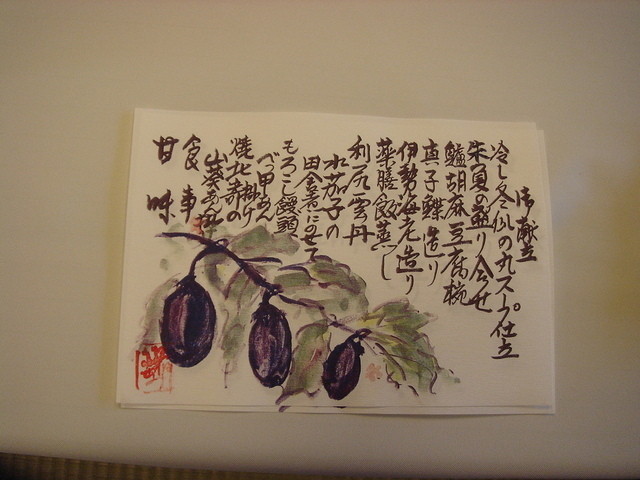 御献立
冷し冬瓜の丸スープ仕立
朱夏の盛り合せ
鱧胡麻豆腐椀
真子鰈造り
伊勢海老造り
薬膳飯蒸し
利尻雲丹
水茄子の
田舎煮にのせて
もろこし饅頭、
べっ甲あん
焼北寄の
山葵あん掛け
食事
甘味